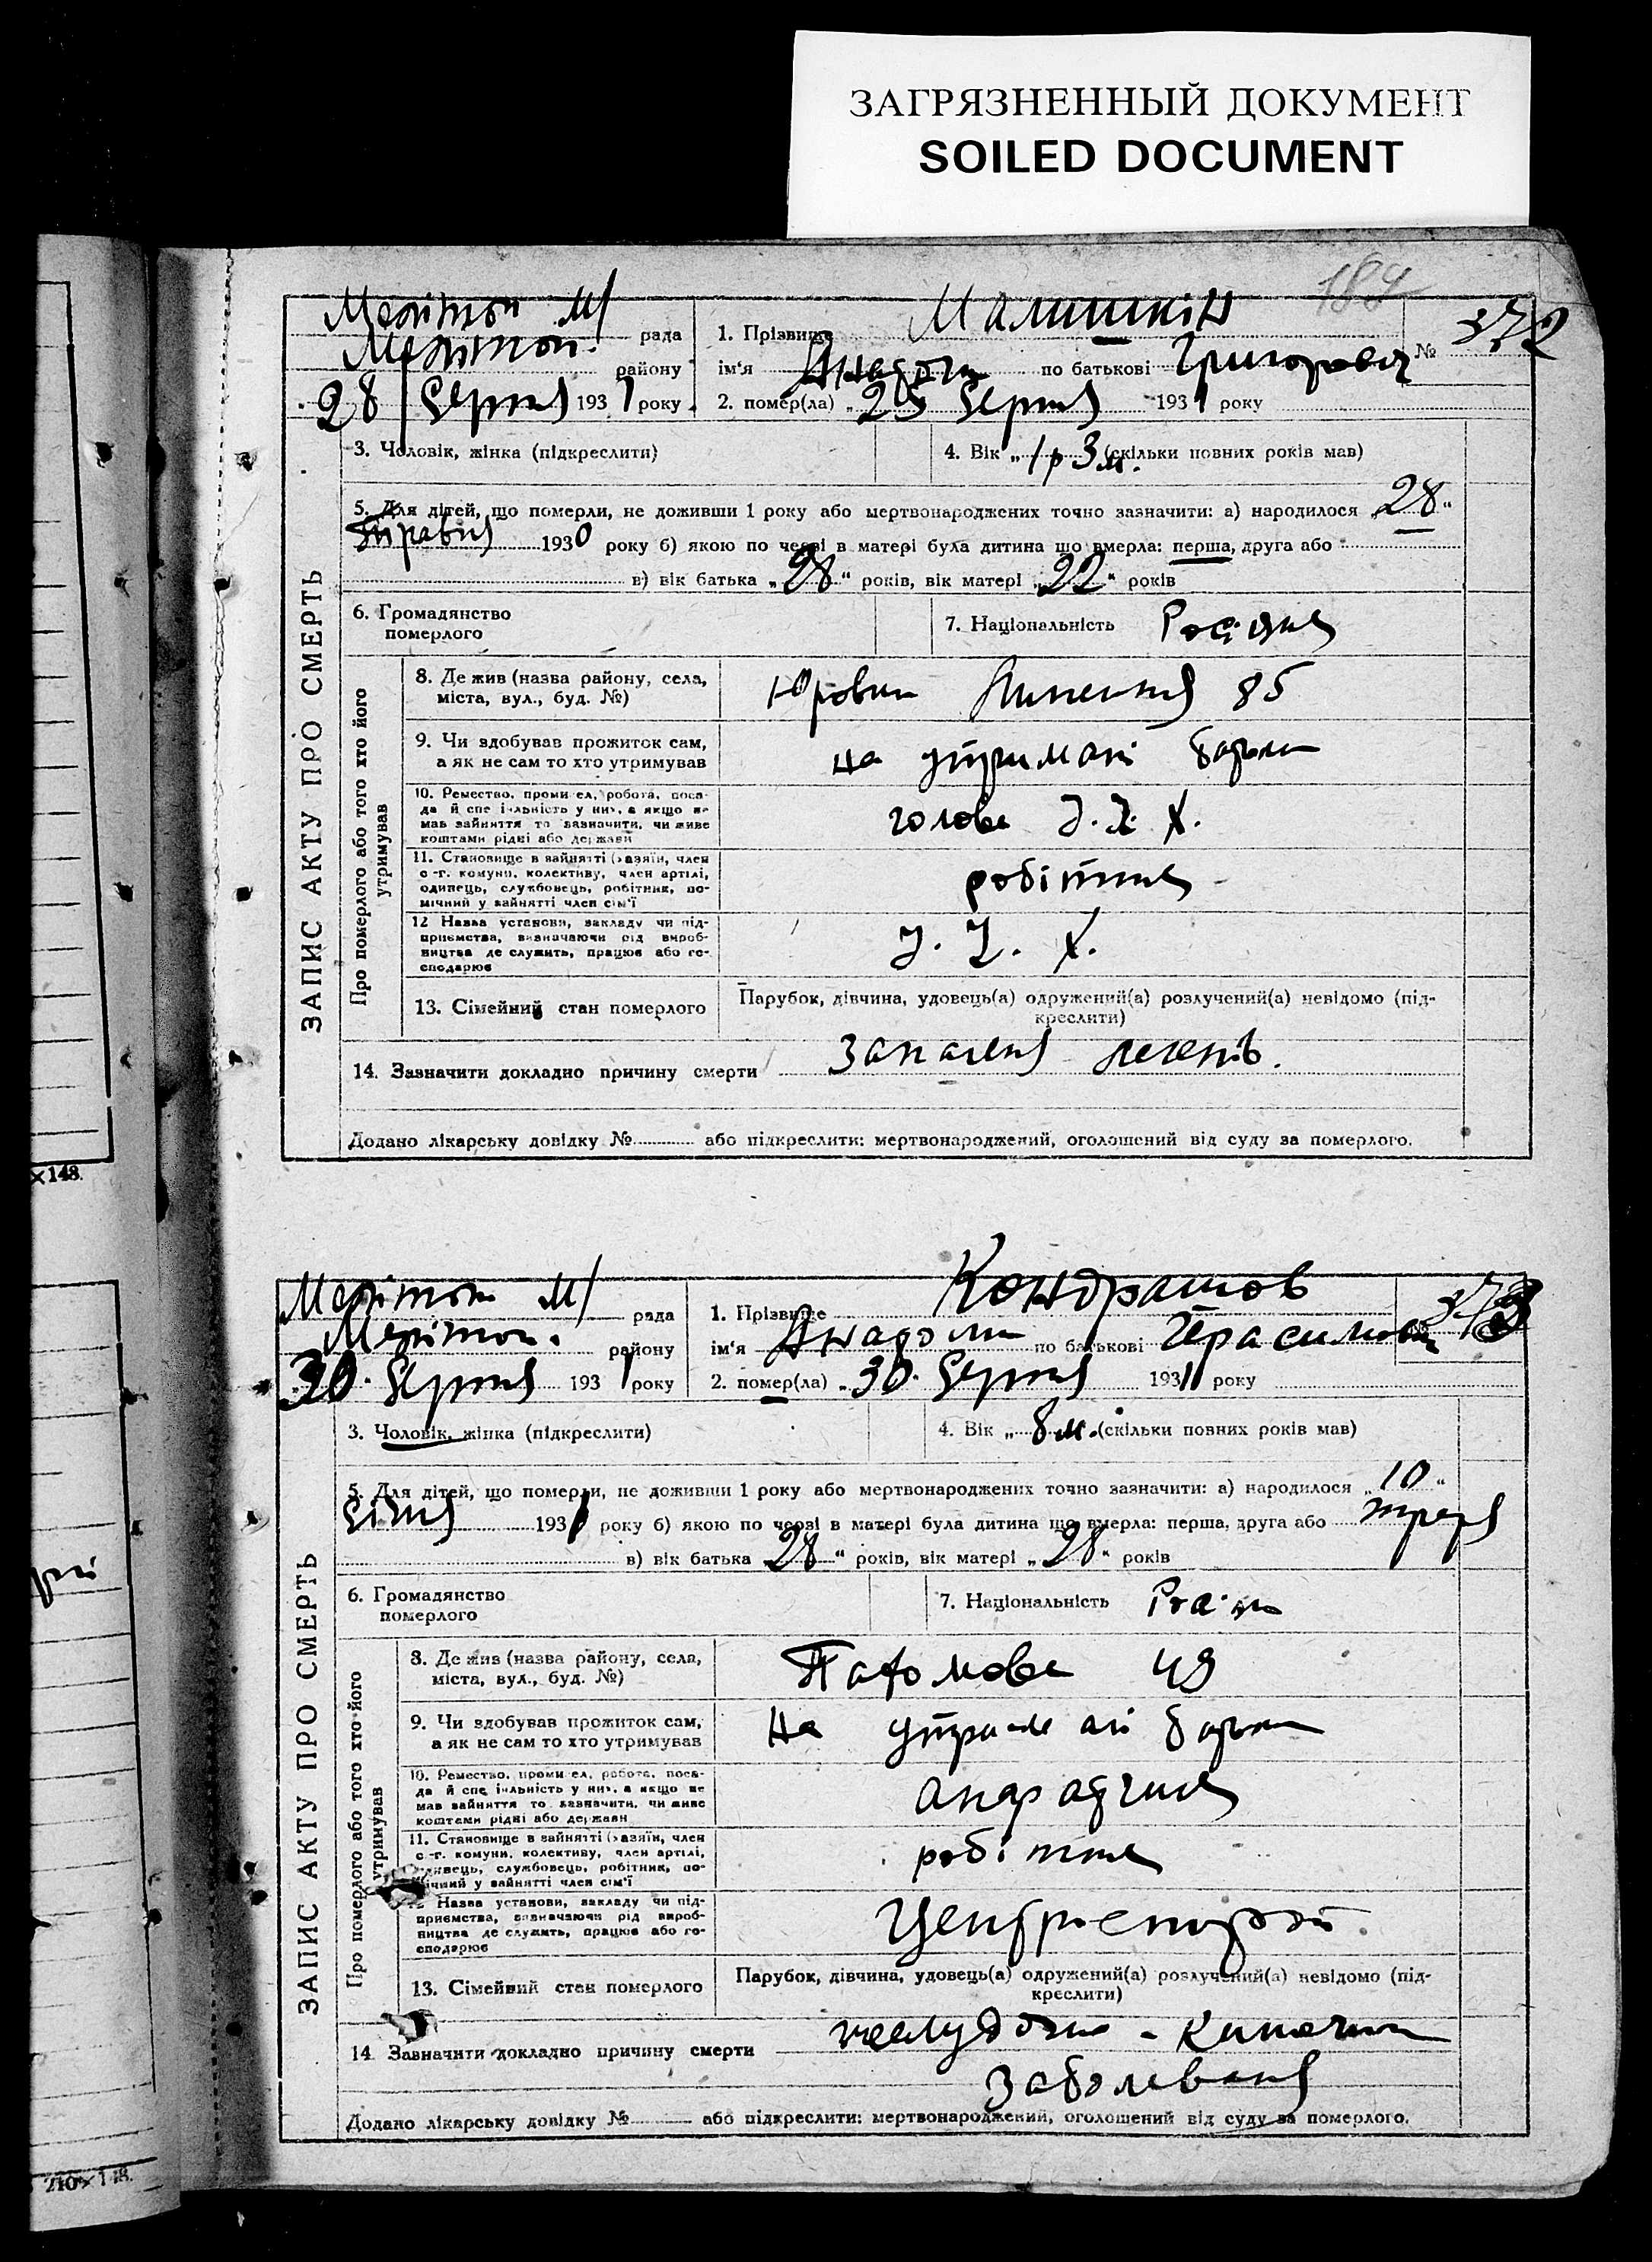 ЗАГРЯЗНЕННЫЙ ДОКУМЕНТ
SOILED DOCUMENT
189
ЗАПИС АКТУ ПРО СМЕРТЬ
М/ рада
району
28 Серпня 1931 року
1. Прізвище Малишкін
№ 372
ім'я по батькові Григорович
2. помер(ла) „25 Серпня 1931 року
3. Чоловік, жінка (підкреслити)
4. Вік „1 р 3 м. (скільки повних років мав)
5. Для дітей, що померли, не доживши 1 року або мертвонароджених точно зазначити: а) народилося „28“
Травня 1930 року б) якою по черзі в матері була дитина що вмерла: перша, друга або
в) вік батька „28“ років, вік матері „22“ років
6. Громадянство
померлого
7. Національність Росіяне
Про померлого або того хто його
утримував
8. Де жив (назва району, села,
міста, вул., буд. №)
85
9. Чи здобував прожиток сам,
а як не сам то хто утримував
на утримані батька
10. Ремество, промисел, робота, поса-
да й спеціальність у них, а якщо не
мав зайняття то зазначити, чи живе
коштами рідні або держави
голова
11. Становище в зайнятті (хазяїн, член
с.-г. комуни, колективу, член артілі,
одинець, службовець, робітник, по-
мічний у зайнятті член сім'ї
робітник
12 Назва установи, закладу чи під-
приємства, визначаючи рід вироб-
ництва де служить, працює або го-
сподарює
13. Сімейний стан померлого
Парубок, дівчина, удовець(а) одружений(а) розлучений(а) невідомо (під-
креслити)
14. Зазначити докладно причину смерти Запаленя легенів.
Додано лікарську довідку № або підкреслити: мертвонароджений, оголошений від суду за померлого.
×148.
ЗАПИС АКТУ ПРО СМЕРТЬ
М/ рада
району
30. Серпня 1931 року
1. Прізвище Кондрашов
373
ім'я Анадолий по батькові Герасимович
2. помер(ла) „30. Серпня 1931 року
3. Чоловік, жінка (підкреслити)
4. Вік „8 м. (скільки повних років мав)
5. Для дітей, що померли, не доживши 1 року або мертвонароджених точно зазначити: а) народилося „10“
Січня 1931 року б) якою по черзі в матері була дитина що вмерла: перша, друга або третя
в) вік батька „28“ років, вік матері „28“ років
6. Громадянство
померлого
7. Національність
Про померлого або того хто його
утримував
8. Де жив (назва району, села,
міста, вул., буд. №)
49
9. Чи здобував прожиток сам,
а як не сам то хто утримував
На утримані батька
10. Ремество, промисел, робота, поса-
да й спеціальність у них, а якщо не
мав зайняття то зазначити, чи живе
коштами рідні або держави
11. Становище в зайнятті (хазяїн, член
с.-г. комуни, колективу, член артілі,
одинець, службовець, робітник, по-
мічний у зайнятті член сім'ї
робітник
12 Назва установи, закладу чи під-
приємства, визначаючи рід вироб-
ництва де служить, працює або го-
сподарює
13. Сімейний стан померлого
Парубок, дівчина, удовець(а) одружений(а) розлучений(а) невідомо (під-
креслити)
14 Зазначити докладно причину смерти желудочно - кишечни
Заболеваня
Додано лікарську довідку № або підкреслити: мертвонароджений, оголошений від суду за померлого.
210×148.